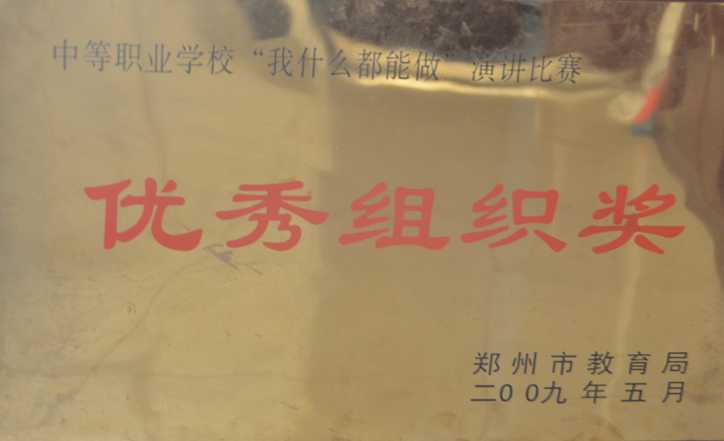 中等职业学校“我什么都能做”演讲比赛
优秀组织奖
郑州市教育局
二00九年五月